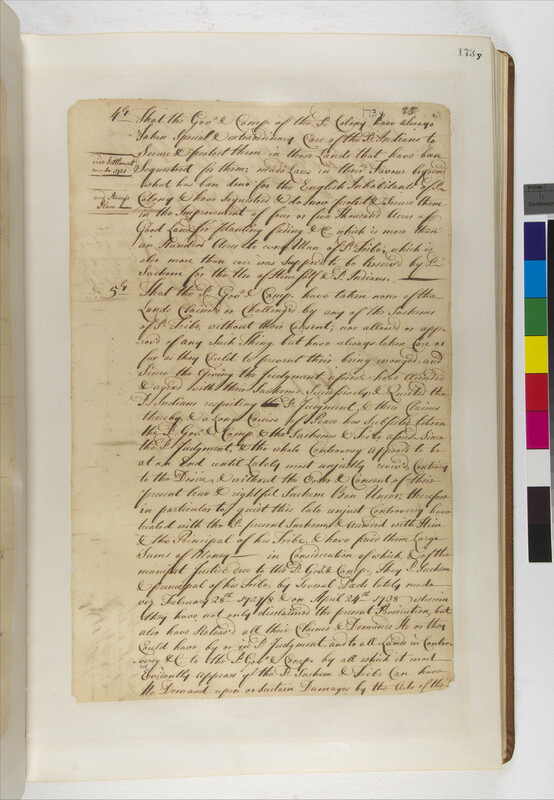 173 y
173 y 28.
4ly That the Govr & Comp. of the sd Colony have always
taken Special & extraordinary Care of the sd Indians to
Secure & protect them in those Lands that have ben
Sequestred for them; made Laws in their favour beyond
what has ben done for the English Inhabitants of sd
Colony & have Sequestred & do now protect & Secure them
in the Improvement of four or five Thousand Acres of
Good Land for planting fishing & C which is more than
an Hundred Acres to every Man of sd Tribe; which is
also more than ever was Suppos'd to be Reserv'd by sd
Sachems for the Use of themselves & sd Indians.
vide Settlement
made 1721
and Masons
Plan
5ly That the sd Govr & Comp. have taken none of the
Lands Claimed or Challenged by any of the Sachems
of sd Tribe, without their Consent; nor allowed or appro-
ved of any Such thing but have always taken Care as
far as they Could to prevent their being wronged: and
Since the Giving the Judgment aforesd have
& agreed with their Sachems, & Quieted the
sd Indians respecting the sd Judgment & their Claims
thereby & a Long Course of Peace has Subsisted between
the sd Govr & Comp. & the Sachems & Tribe aforesd Since
the sd Judgment, & the whole Controversy appeard to be
at an End until Lately most unjustly reviv'd, Contrary
to the Desire, & without the Order & Consent of their
present true & rightful Sachem Ben Uncas; therefore
in particular to quiet this late unjust Controversy have
treated with the sd present Sachem & Advised with Him
& the Principal of his Tribe, & have paid them Large
Sums of Money in Consideration of which, & of the
manifest Justice due to the sd Govr & Comp., They sd Sachem
& principal of his Tribe, by Several Deeds lately made
viz February 28th 1737/8 & on April 24th 1738 wherein
they have not only disclaimed the present Prosecution, but
also have Released all their Claims & Demands He or they
Could have by or in sd Judgment and to all Lands in Contro-
versy & C to the sd Govr & Comp. by all which it most
Evidently Appears yt the sd Sachem & Tribe Can have
No Demand upon or Sustain Damages by the Acts of the